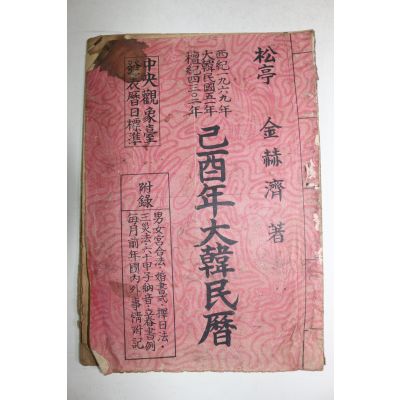 松亭 金赫濟 著
己酉年大韓民曆
西紀一九六九年
大韓民國五一年
檀紀四三〇二年
中央觀象臺
發表曆日標準
附錄
男女宮合法·婚書式·擇日法·
三災法·六十甲子納音·立春書例
每月前年國內外事情附記